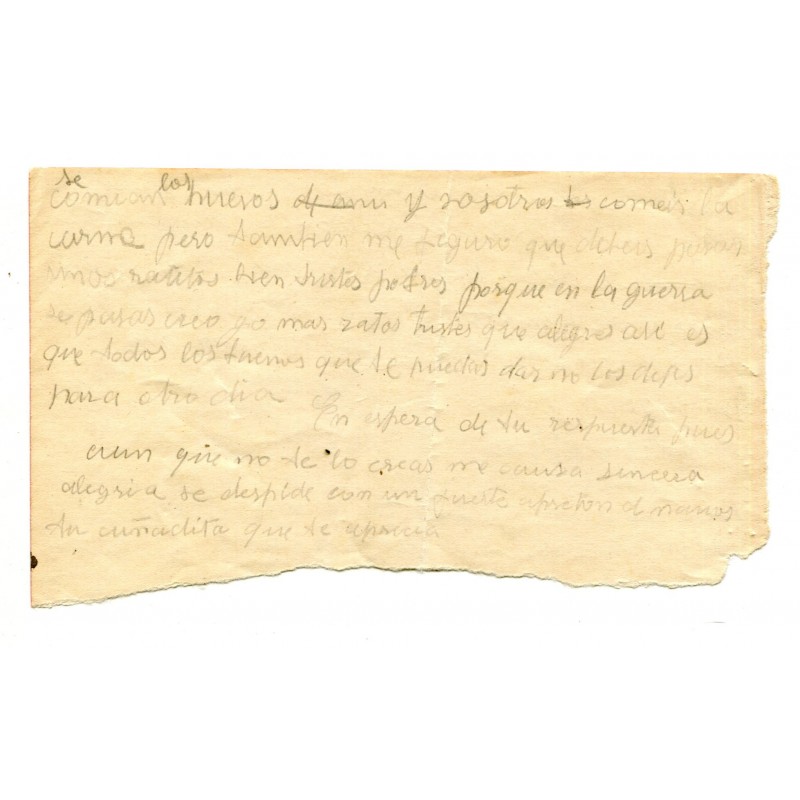 se los
comian huevos y vosotros comeis la
carne pero tambien me seguro que debeis pasar
unos ratitos bien tristes pobres porque en la guerra
se pasas creo yo mas ratos tristes que alegres asi es
que todos los buenos que te puedas dar no los dejes
para otro dia
En espera de tu respuesta pues
aun que no te lo creas me causa sincera
alegria se despide con un fuerte apreton d manos
tu cuñadita que te aprecia